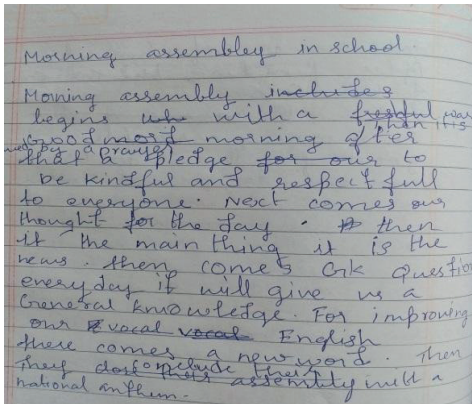 Morning assembley in school.
Morning assembly includes
begins whe with a freshful war
Good mord morning after
that a pledge for our to
be kindful and respectfull
to everyone. Next comes our
thought for the day. then
it the main thing it is the
news. then comes Gk Question
everyday it will give us a
General knowledge. For improving
our vocal vocal English
there comes a new word. Then
They conclude their assembly with a
national anthem.